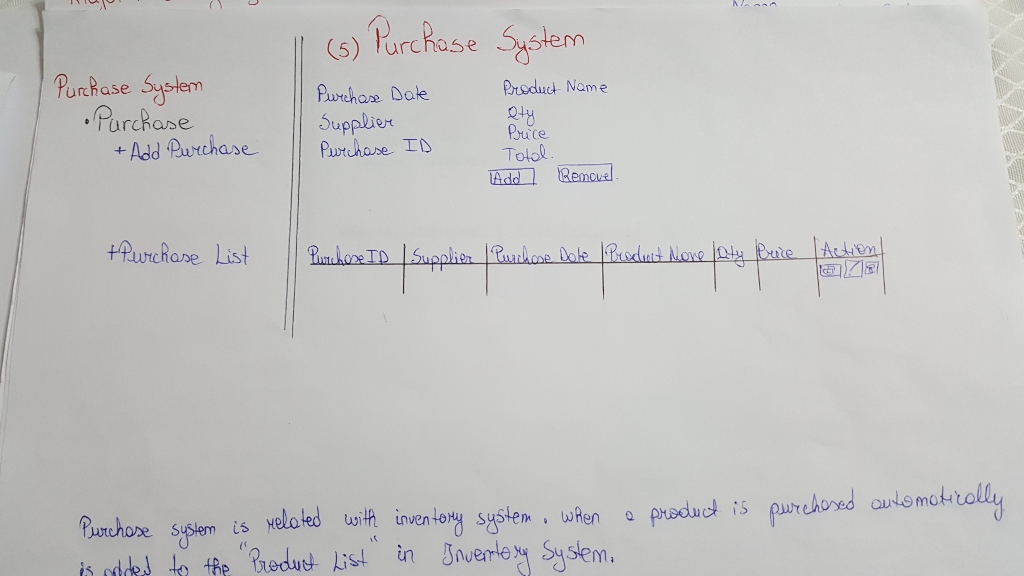 (5) Purchase System
Purchase System
• Purchase
+ Add Purchase
Purchase Date
Supplier
Purchase ID
Product Name
Qty
Price
Total.
Add Remove.
+ Purchase List
Purchase ID | Supplier | Purchase Date | Product Name | Qty | Price | Action
Purchase system is related with inventory system. when a product is purchased automatically
is added to the "Product List" in Inventory System.